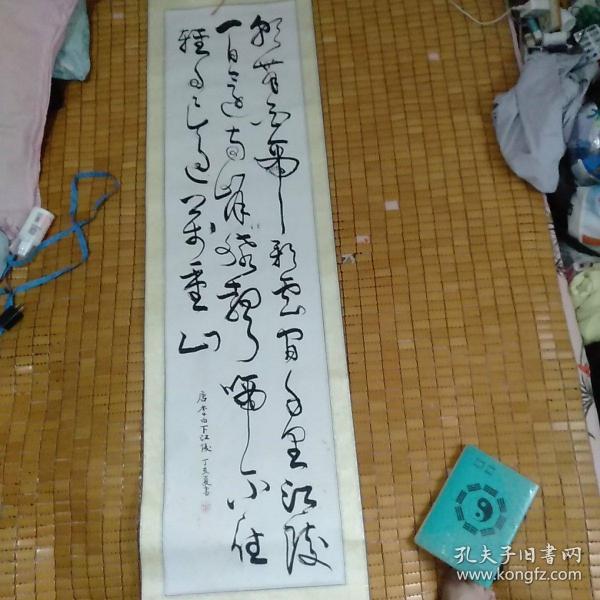 朝辭白帝彩雲間千里江陵
一日還兩岸猿聲啼不住
輕舟已過萬重山
唐李白下江陵 丁亥夏書
孔夫子旧书网
www.kongfz.com